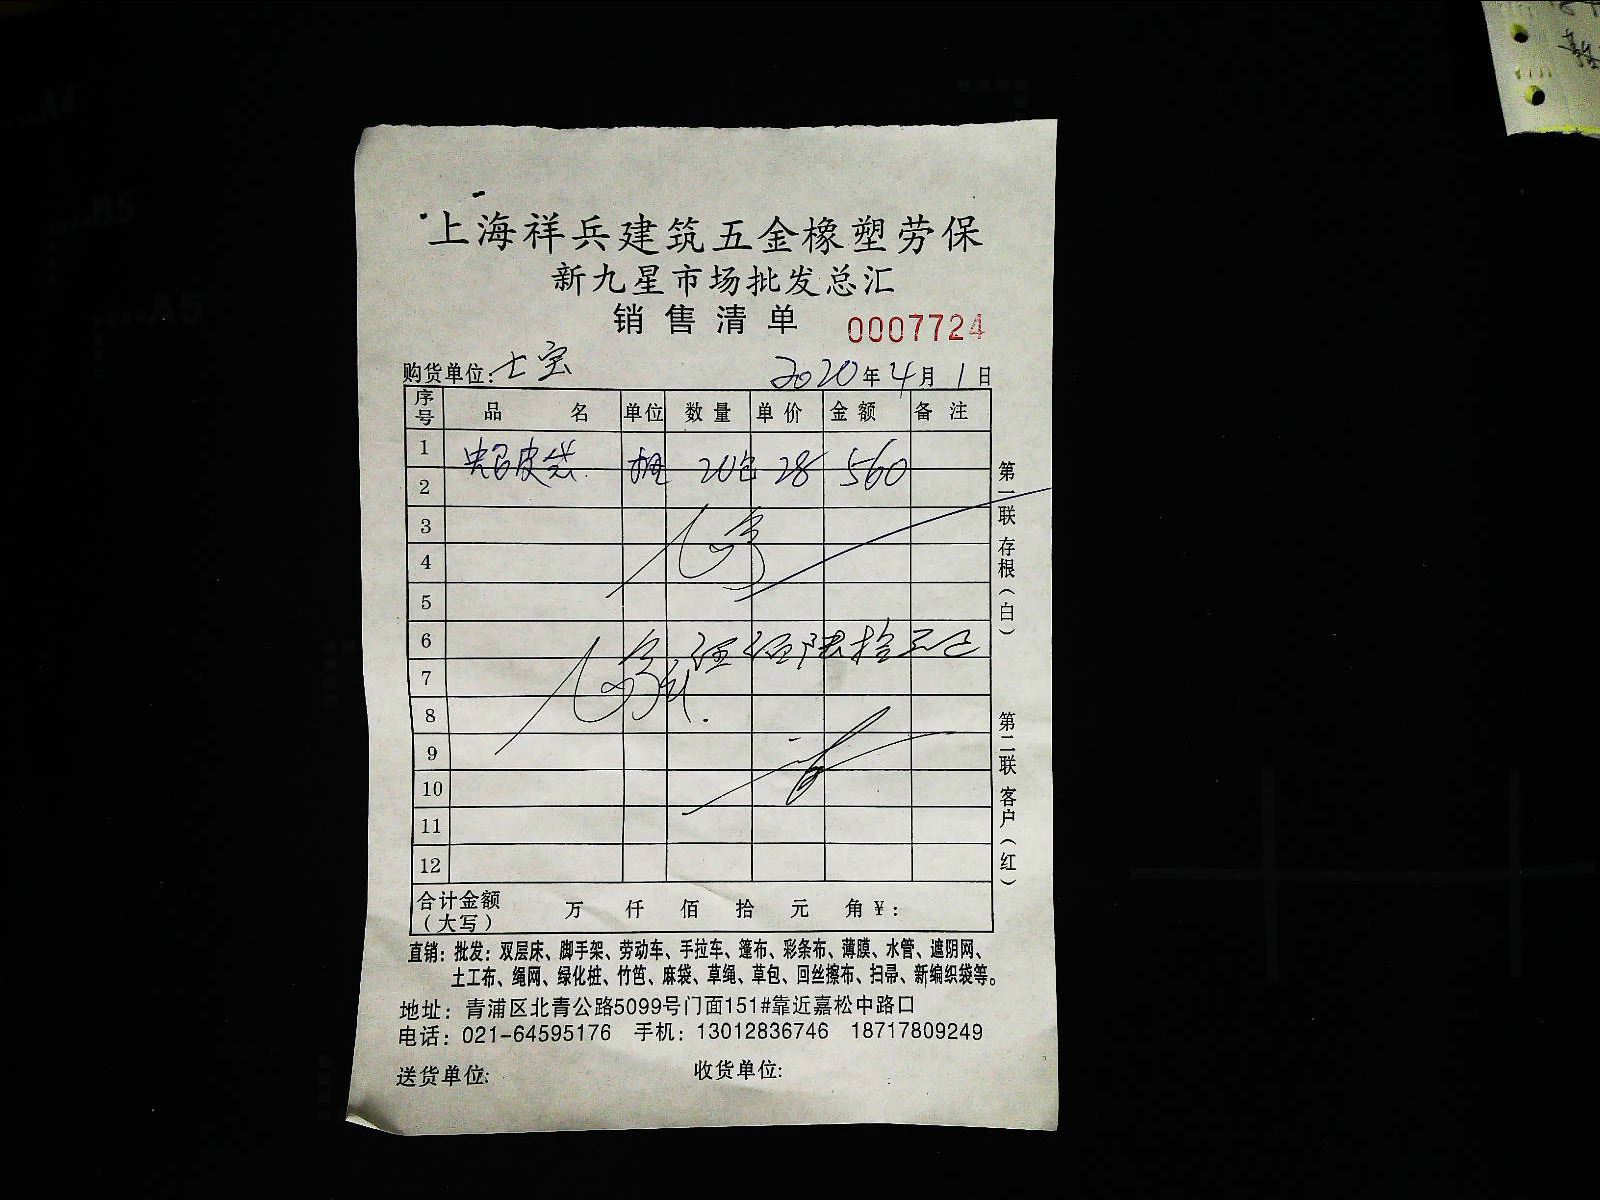 上海祥兵建筑五金橡塑劳保
新九星市场批发总汇
销售清单 0007724
购货单位:七宝 2020年4月1日
序号 品名 单位 数量 单价 金额 备注
1
皮袋 20 28 560
2
3
4
5
6
伍佰陆拾元正
7
8
9
10
11
12
合计金额(大写) 万 仟 佰 拾 元 角 ¥:
第一联 存根(白)
第二联 客户(红)
直销:批发:双层床、脚手架、劳动车、手拉车、篷布、彩条布、薄膜、水管、遮阴网、
土工布、绳网、绿化桩、竹笆、麻袋、草绳、草包、回丝擦布、扫帚、新编织袋等。
地址:青浦区北青公路5099号门面151#靠近嘉松中路口
电话:021-64595176 手机:13012836746 18717809249
送货单位: 收货单位: